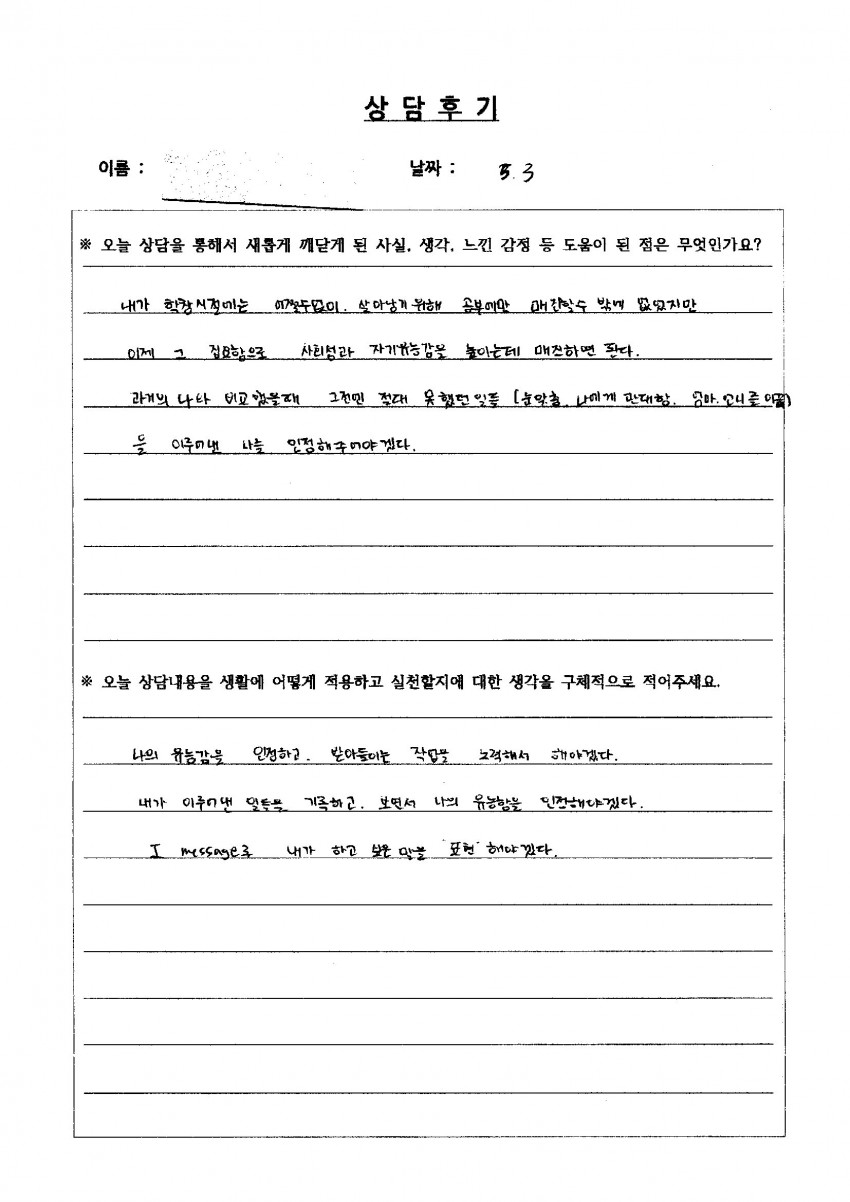 상 담 후 기
이름 :
날짜 : 5. 3
※ 오늘 상담을 통해서 새롭게 깨닫게 된 사실, 생각, 느낀 감정 등 도움이 된 점은 무엇인가요?
내가 학창시절에는 어쩔수없이. 살아남기 위해 공부에만 매진할수 밖에 없었지만
이제 그 집요함으로 사회성과 자기유능감을 높이는데 매진하면 된다.
과거의 나와 비교했을때 그전엔 절대 못했던 일들 (눈맞춤, 나에게 관대함, 엄마.언니
을 이루어낸 나를 인정해주어야겠다.
※ 오늘 상담내용을 생활에 어떻게 적용하고 실천할지에 대한 생각을 구체적으로 적어주세요.
나의 유능감을 인정하고. 받아들이는 작업을 노력해서 해야겠다.
내가 이루어낸 일들을 기록하고. 보면서 나의 유능함을 인정해야겠다.
I message로 내가 하고 싶은 말을 "표현" 해야겠다.